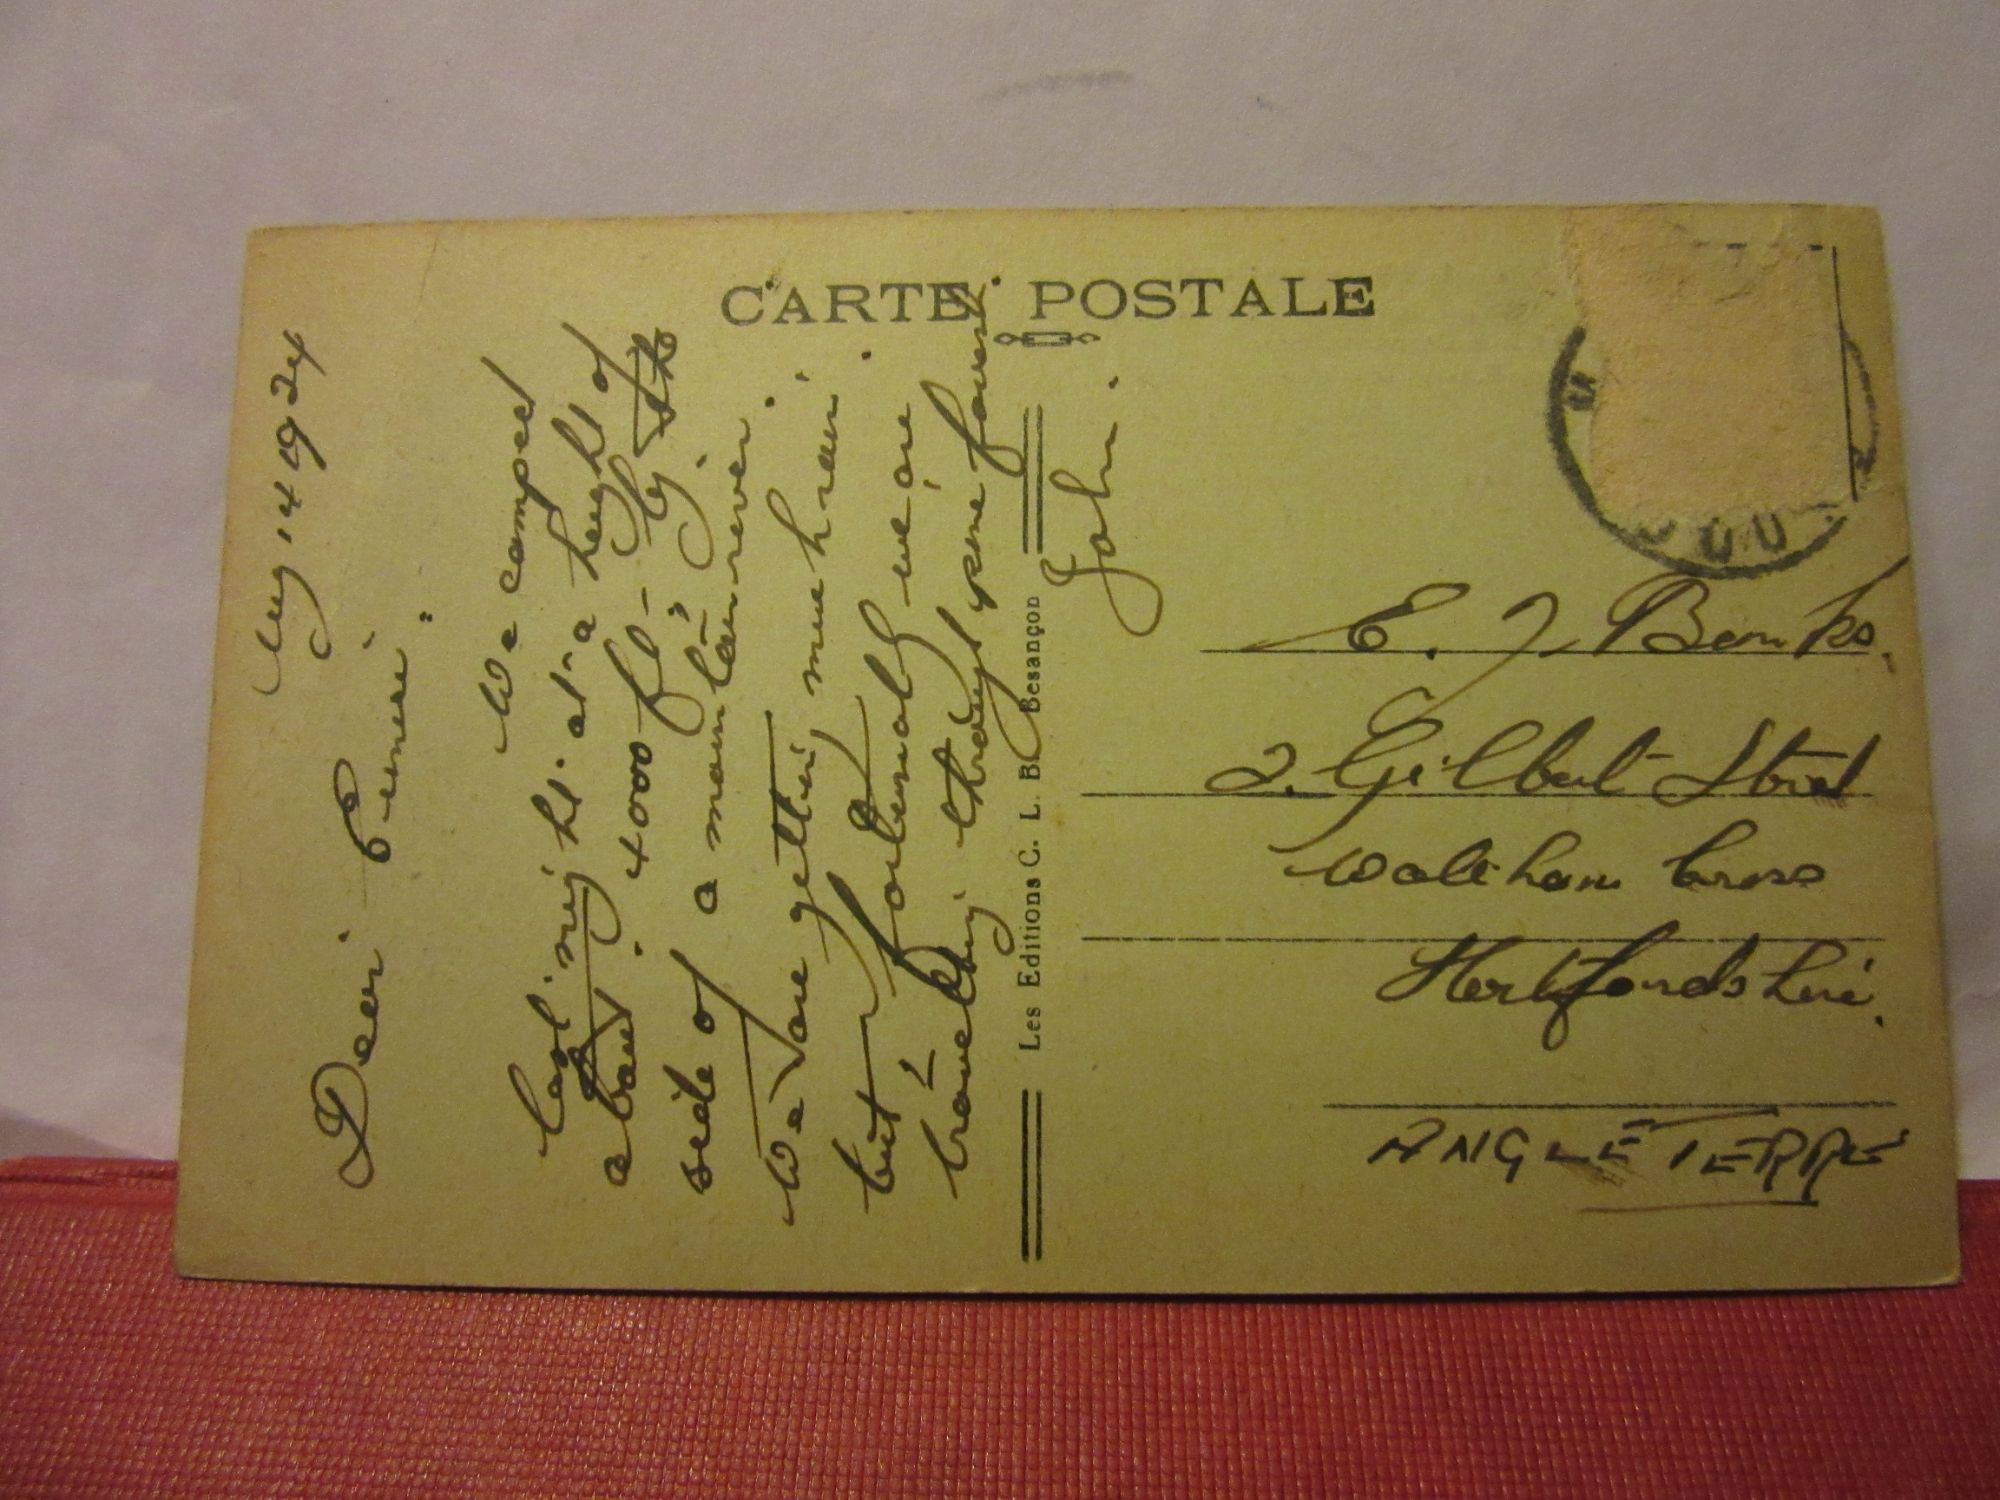 CARTE POSTALE
Aug 14 1924
Dear
We camped
last night at a height of
about 4000 ft by the
side of a mountain river.
We are getting much rain
but fortunately we are
travelling through pine forest.
John.
Les Editions C. L. B. Besançon
E. J. Banks.
2. Gilbert Street
Waltham Cross
Hertfordshire.
ANGLETERRE